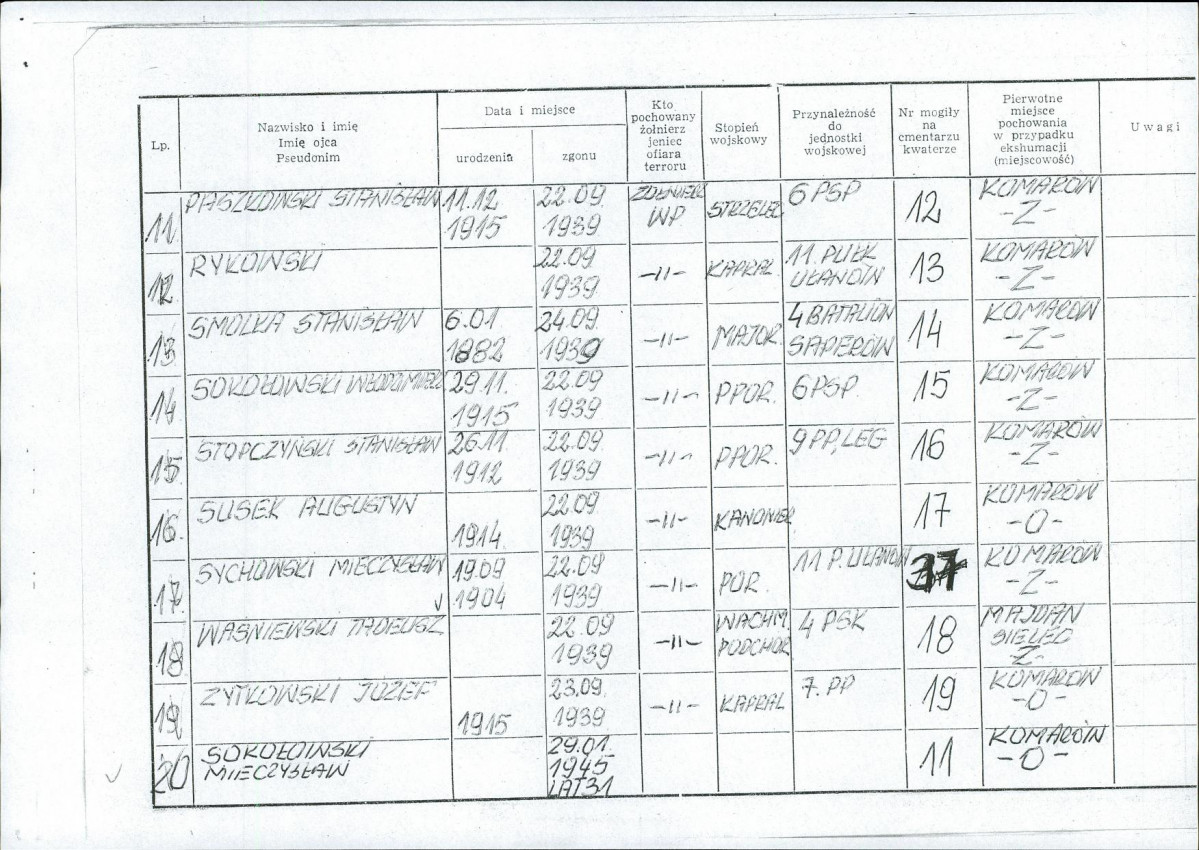 Lp.
Nazwisko i imię
Imię ojca
Pseudonim
Data i miejsce
urodzenia
zgonu
Kto
pochowany
żołnierz
jeniec
ofiara
terroru
Stopień
wojskowy
Przynależność
do
jednostki
wojskowej
Nr mogiły
na
cmentarzu
kwaterze
Pierwotne
miejsce
pochowania
w przypadku
ekshumacji
(miejscowość)
Uwagi
11 PIASZKOWSKI STANISŁAW 11.12 1915 22.09 1939 ŻOŁNIERZ WP STRZELEC 6 PSP 12 KOMARÓW -Z-
12 RYKOWSKI 22.09 1939 -11- KAPRAL 11. PUŁK UŁANÓW 13 KOMARÓW -Z-
13 SMOLKA STANISŁAW 6.01 1882 24.09 1939 -11- MAJOR 4 BATALION SAPERÓW 14 KOMARÓW -Z-
14 SOKOŁOWSKI WŁODZIMIERZ 29.11 1915 22.09 1939 -11- PPOR. 6 PSP. 15 KOMARÓW -Z-
15 STOPCZYŃSKI STANISŁAW 26.11 1912 22.09 1939 -11- PPOR. 9 PP, LEG 16 KOMARÓW -Z-
16 SUSEK AUGUSTYN 1914 22.09 1939 -11- KANONIER 17 KOMARÓW -O-
17 SYCHOWSKI MIECZYSŁAW 19.09 1904 22.09 1939 -11- POR. 11 P. UŁANÓW 37 KOMARÓW -Z-
18 WAŚNIEWSKI TADEUSZ 22.09 1939 -11- WACHM. PODCHOR 4 PSK 18 MAJDAN SIELEC -Z-
19 ZYTKOWSKI JÓZEF 1915 23.09 1939 -11- KAPRAL 7. PP 19 KOMARÓW -O-
20 SOKOŁOWSKI MIECZYSŁAW 29.01. 1945 LAT 31 11 KOMARÓW -O-